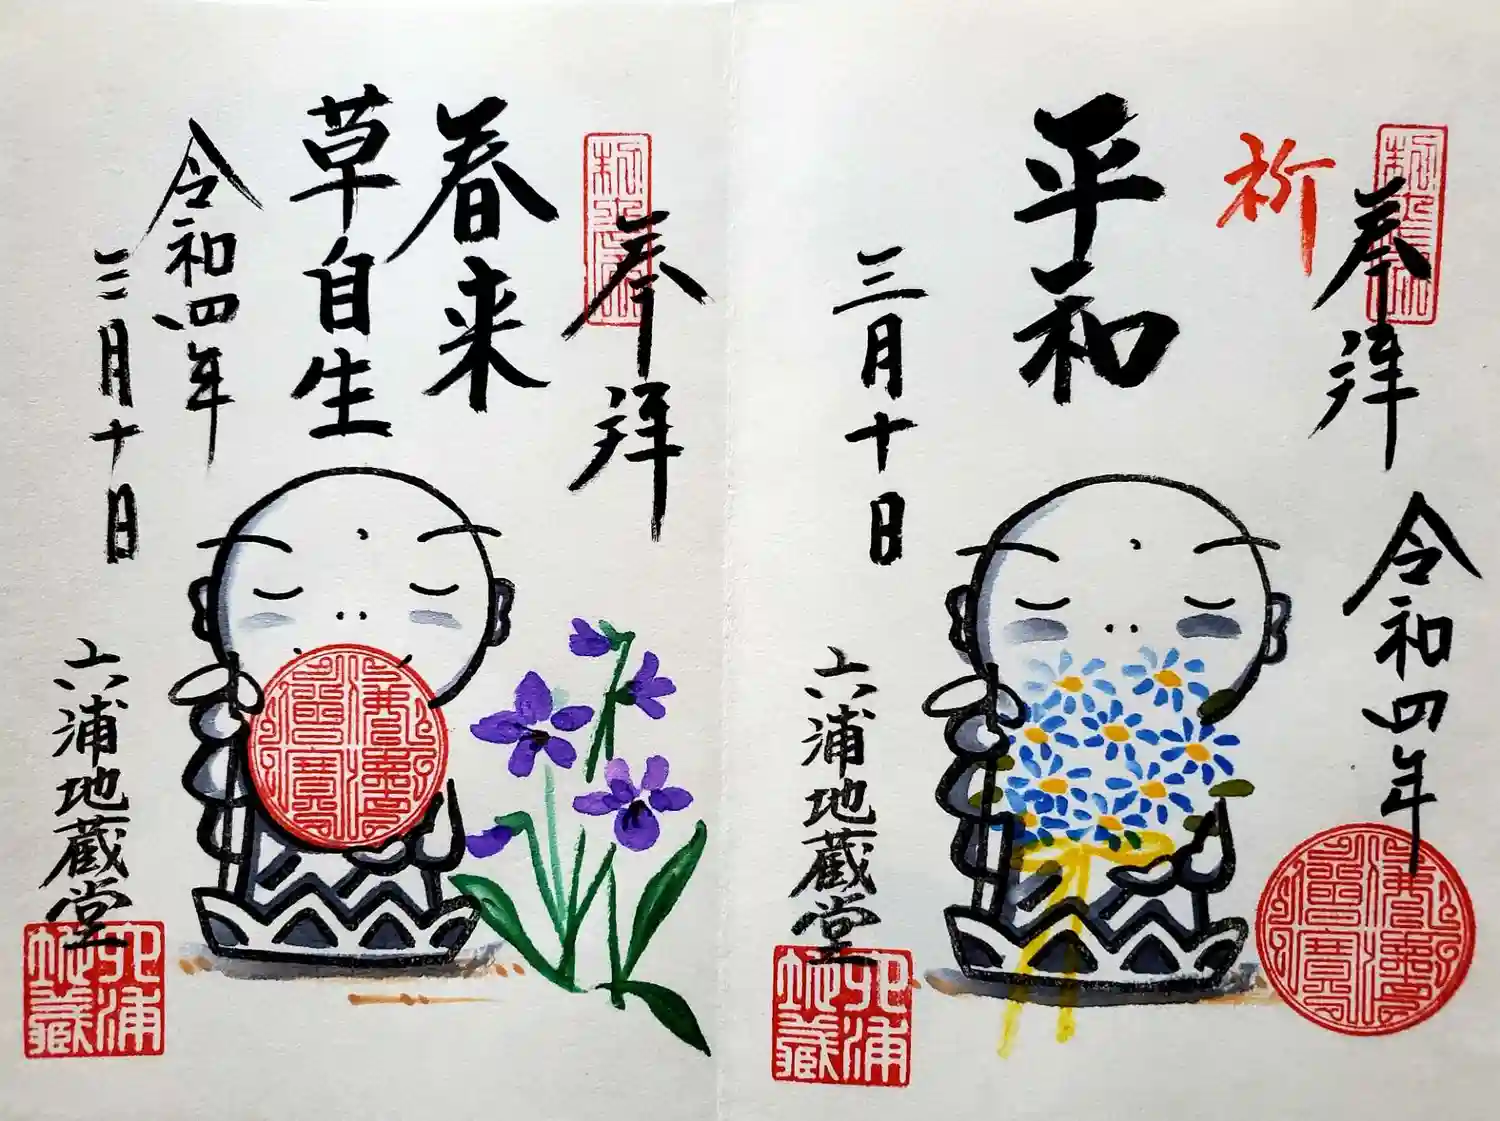 奉拝
祈
平和
三月十日
令和四年
六浦地蔵堂
六浦地蔵
佛法僧寳
奉拝
春来
草自生
令和四年
三月十日
六浦地蔵堂
六浦地蔵
佛法僧寳